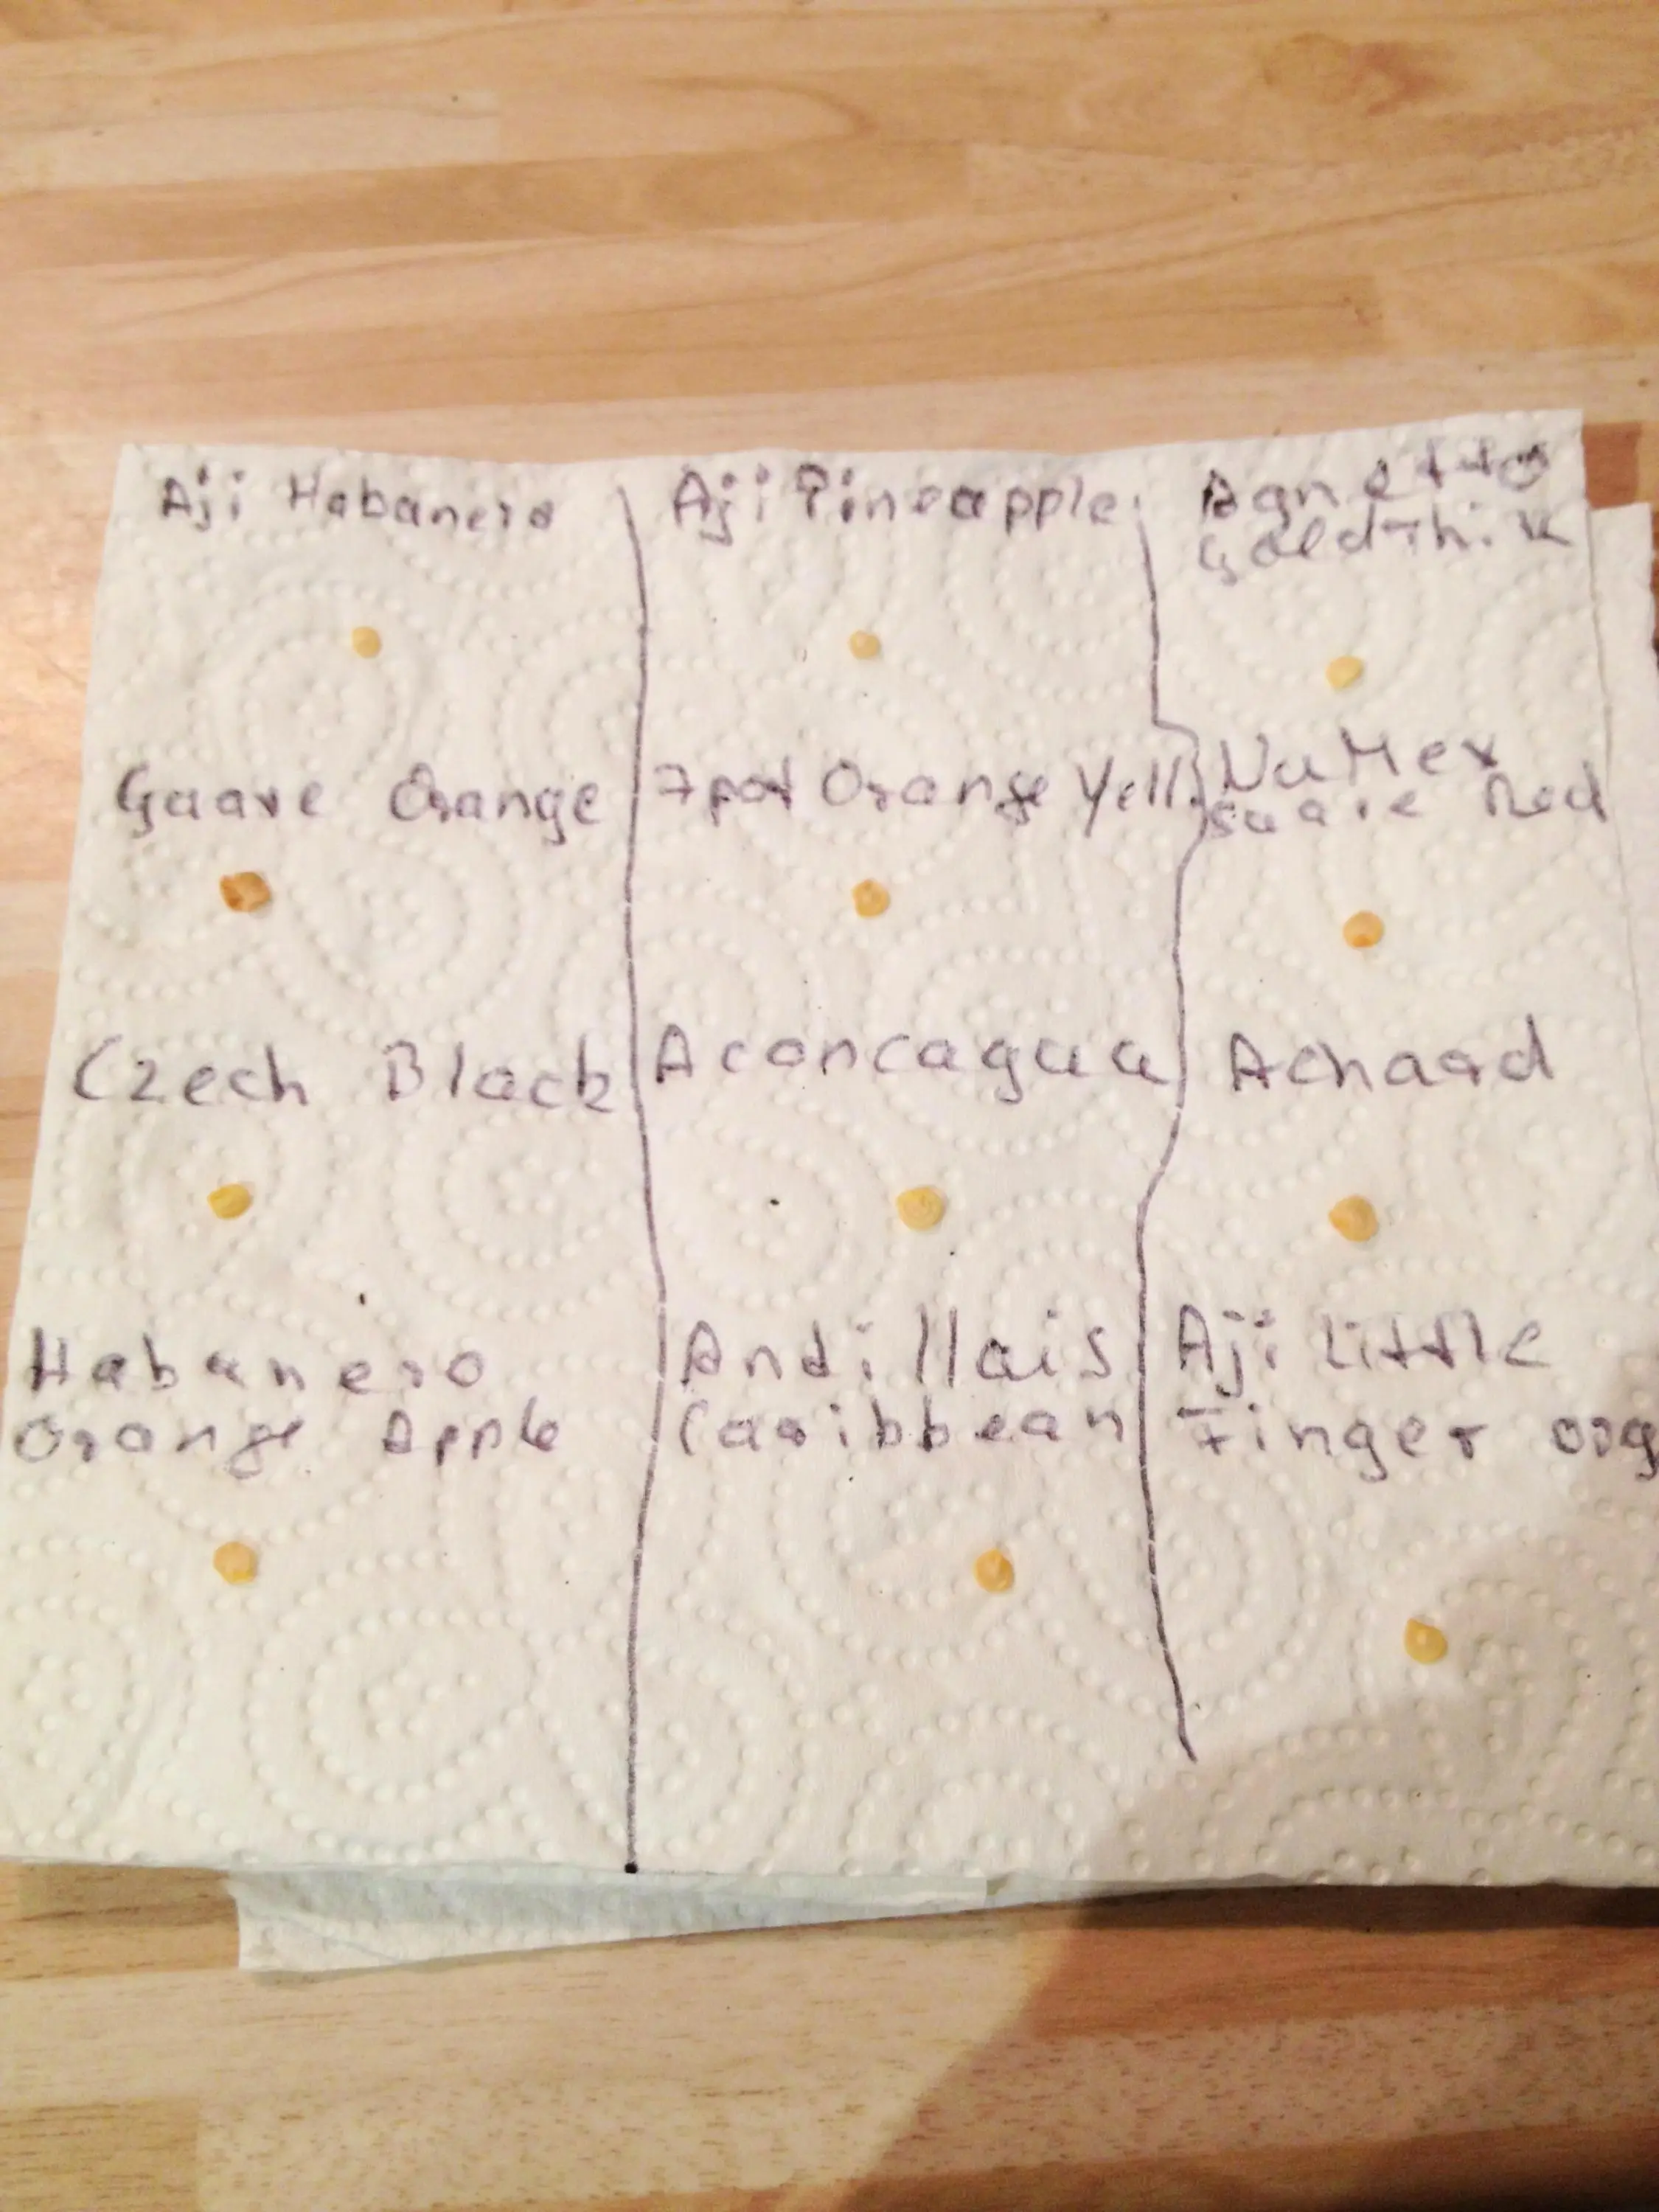 Aji Habanero
Aji Pineapple
Agnetto
Gold
Orange
7pot Orange Yell.
NuMex
Suave Red
Czech Black
Aconcagua
Achaad
Habanero
Orange Apple
Andillais
Caribbean
Aji Little
Finger org